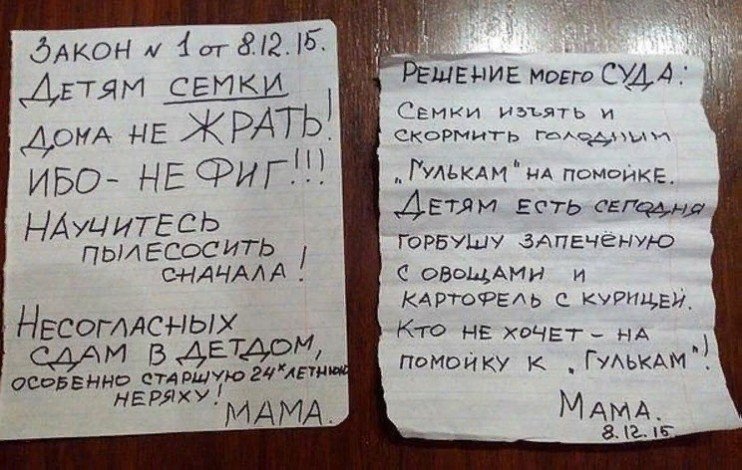 ЗАКОН № 1 от 8.12.15.
ДЕТЯМ СЕМКИ
ДОМА НЕ ЖРАТЬ!
ИБО - НЕ ФИГ!!!
НАУЧИТЕСЬ
ПЫЛЕСОСИТЬ
СНАЧАЛА!
НЕСОГЛАСНЫХ
СДАМ В ДЕТДОМ,
ОСОБЕННО СТАРШУЮ 24х ЛЕТНЮЮ
НЕРЯХУ!
МАМА.
РЕШЕНИЕ МОЕГО СУДА:
СЕМКИ ИЗЪЯТЬ И
СКОРМИТЬ ГОЛОДНЫМ
„ГУЛЬКАМ" НА ПОМОЙКЕ.
ДЕТЯМ ЕСТЬ СЕГОДНЯ
ГОРБУШУ ЗАПЕЧЁНУЮ
С ОВОЩАМИ И
КАРТОФЕЛЬ С КУРИЦЕЙ.
КТО НЕ ХОЧЕТ - НА
ПОМОЙКУ К „ГУЛЬКАМ"!
МАМА.
8.12.15